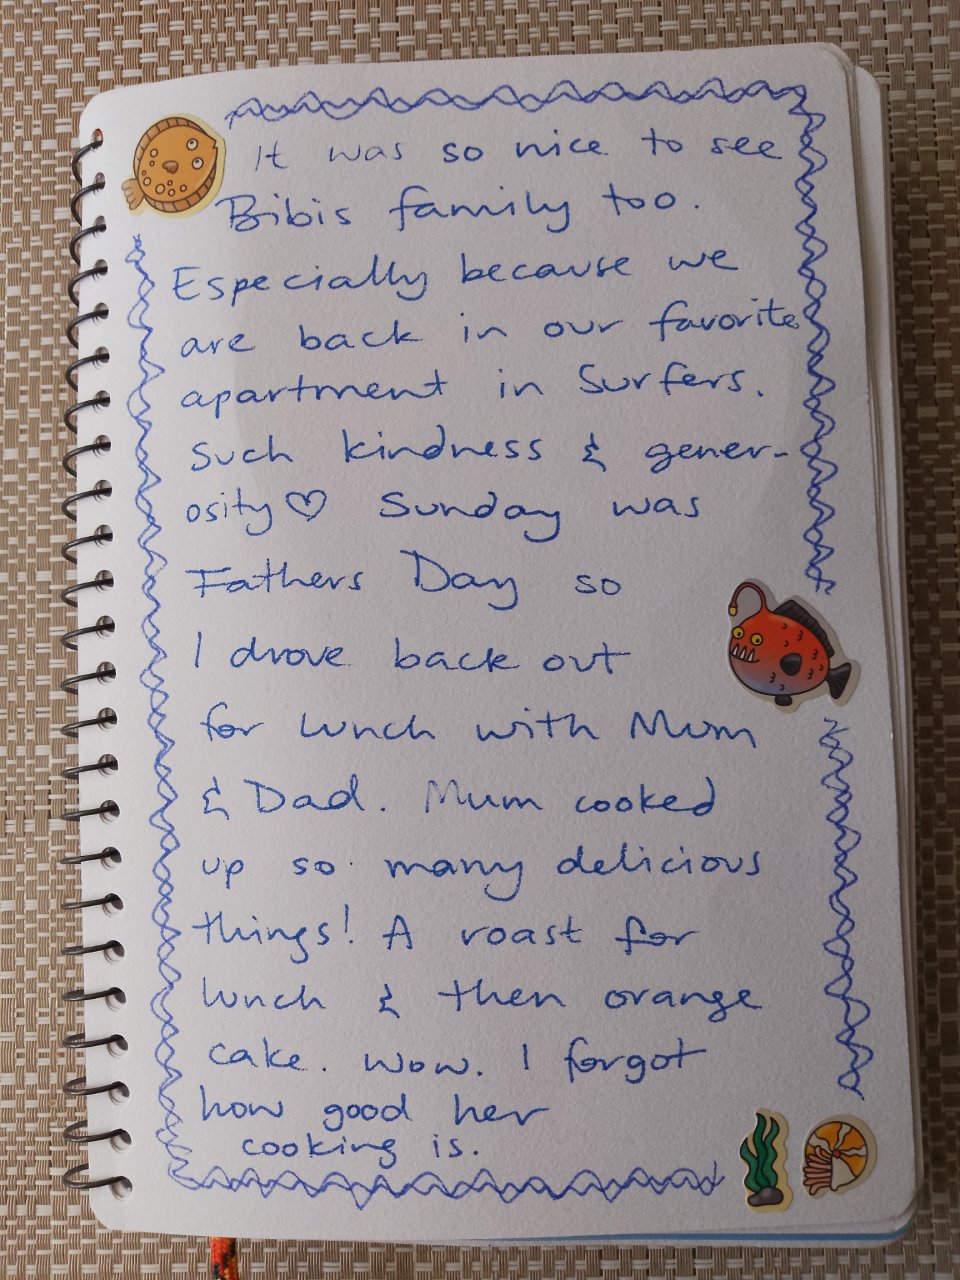 It was so nice to see
Bibis family too.
Especially because we
are back in our favorite
apartment in Surfers.
Such kindness & gener-
osity♡ Sunday was
Fathers Day so
I drove back out
for lunch with Mum
& Dad. Mum cooked
up so many delicious
things! A roast for
lunch & then orange
cake. Wow. I forgot
how good her
cooking is.